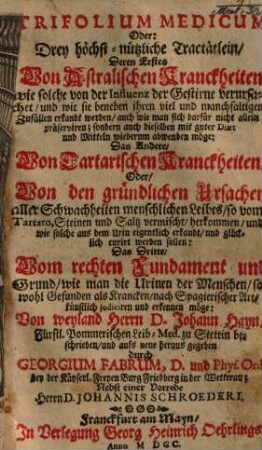 TRIFOLIUM MEDICUM
Oder:
Drey höchst-nützliche Tractätlein/
Deren Erstes
Von Astralischen Kranckheiten
wie solche von der Influenz der Gestirne verursa-
chet/ und wie sie beneben ihren viel und manchfaltigen
Zufällen erkandt werden/ auch wie man sich darfür nicht allein
præserviren; sondern auch dieselben mit guter Diæt
und Mitteln wiederum abwenden möge:
Das Andere/
Von Tartarischen Kranckheiten/
Oder/
Von den gründlichen Ursachen
aller Schwachheiten menschlichen Leibes/ so vom
Tartaro, Steinen und Saltz vermischt/ herkommen/ und
wie solche aus dem Urin eigentlich erkandt/ und glück-
lich curirt werden sollen:
Das Dritte/
Vom rechten Fundament und
Grund/ wie man die Urinen der Menschen/ so
wohl Gesunden als Krancken/ nach Spagierischer Art/
künstlich judiciren und erkennen möge:
Von weyland Herrn D. Johann Hayn/
Fürstl. Pommerischen Leib-Med. zu Stettin be-
schrieben/ und auffs neue heraus gegeben
durch
GEORGIUM FABRUM, D. und Phys. Ord.
bey der Käyserl. Freyen Burg Friedberg in der Wetterau;
Nebst einer Vorrede
Herrn D. JOHANNIS SCHROEDERI.
Franckfurt am Mayn/
In Verlegung Georg Heinrich Oehrlings.
Anno M DCC.